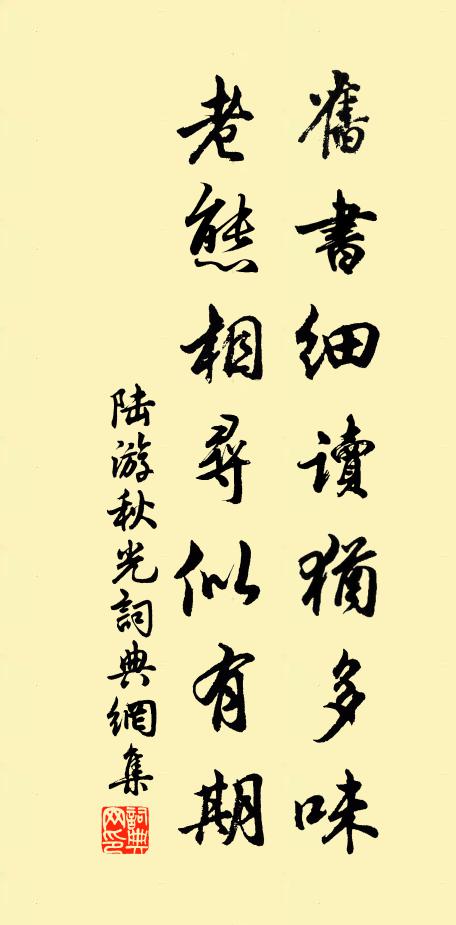 舊書細讀猶多味
老態相尋似有期
陸游秋光詞典網集
詞典
网印